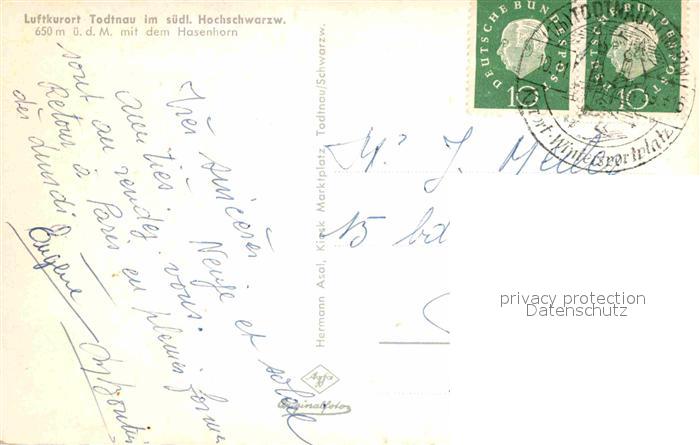 Luftkurort Todtnau im südl. Hochschwarzw.
650 m ü. d. M. mit dem Hasenhorn
Très sincères
amitiés. Neige et soleil
sont au rendez vous.
Retour à Paris en pleine forme
dès Lundi
Eugene
Hermann Asal, Kiosk Marktplatz, Todtnau/Schwarzw.
Agfa
Originalfoto
DEUTSCHE BUNDESPOST
10
DEUTSCHE BUNDESPOST
10
TODTNAU
Wintersportplatz
J. Meller
bd
privacy protection
Datenschutz